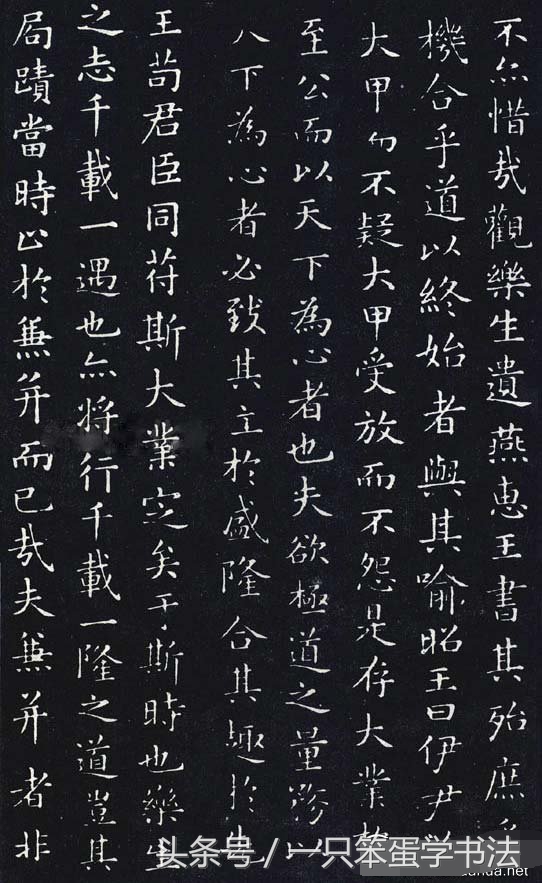 不亦惜哉觀樂生遺燕惠王書其殆庶乎
機合乎道以終始者與其喻昭王曰伊尹放
大甲而不疑大甲受放而不怨是存大業於
至公而以天下為心者也夫欲極道之量務以
天下為心者必致其主於盛隆合其趣於先
王苟君臣同苻斯大業定矣于斯時也樂生
之志千載一遇也亦將行千載一隆之道豈其
局蹟當時止於兼并而已哉夫兼并者非
头条号／一只笨蛋学书法